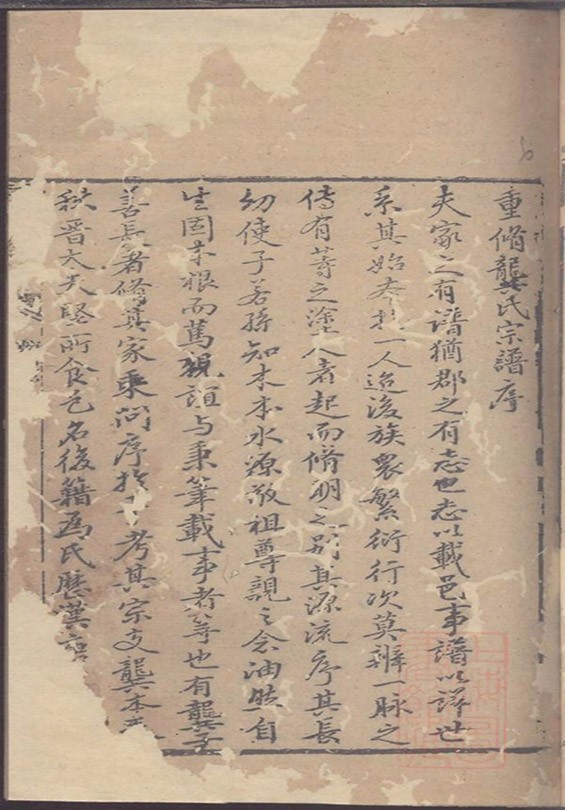 重脩龔氏宗譜序
夫家之有譜猶郡之有志也志以載邑事譜以詳世
系其始本於一人迨後族眾繁衍行次莫辨一脉之
傳有等之塗人者起而脩明之別其源流序其長
幼使子若孫知木本水源敬祖尊親之念油然自
生固本根而篤親誼与秉筆載事者等也有龔子
善長者脩其家乘問序於 考其宗支龔本
晋大夫堅所食邑名後籍為氏歷漢